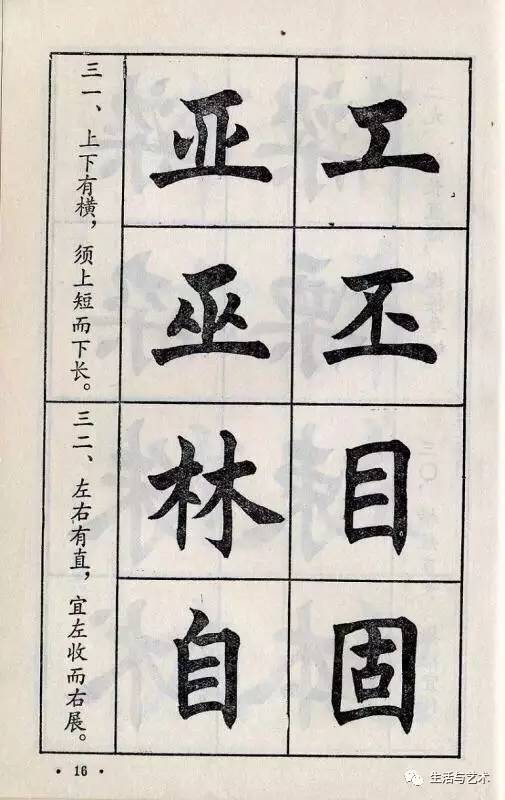 工丕目固
亚巫林自
三一、上下有横，须上短而下长。
三二、左右有直，宜左收而右展。
· 16 ·
生活与艺术